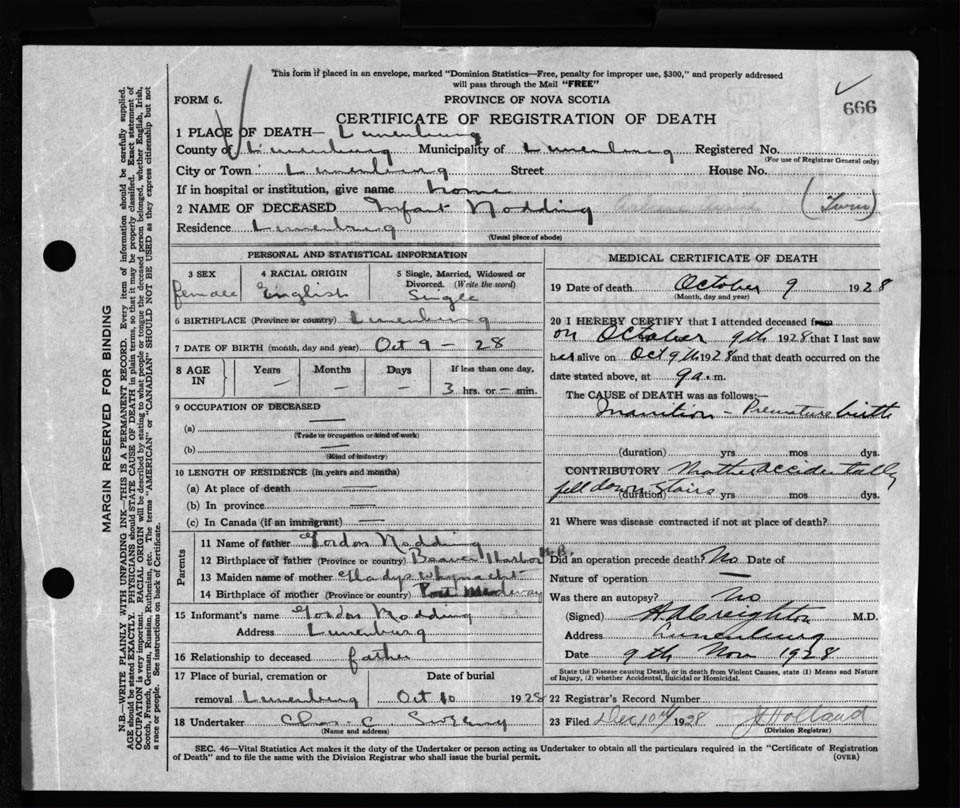 This form if placed in an envelope, marked "Dominion Statistics—Free, penalty for improper use, $300," and properly addressed
will pass through the Mail "FREE"
FORM 6.
PROVINCE OF NOVA SCOTIA
666
CERTIFICATE OF REGISTRATION OF DEATH
1 PLACE OF DEATH— Lunenburg
County of Lunenburg Municipality of Lunenburg Registered No.
(For use of Registrar General only)
City or Town Lunenburg Street House No.
If in hospital or institution, give name home
2 NAME OF DECEASED Infant Nodding (Twin)
Residence Lunenburg
(Usual place of abode)
PERSONAL AND STATISTICAL INFORMATION
3 SEX 4 RACIAL ORIGIN 5 Single, Married, Widowed or
Divorced. (Write the word)
female English Single
6 BIRTHPLACE (Province or country) Lunenburg
7 DATE OF BIRTH (month, day and year) Oct 9 – 28
8 AGE IN Years Months Days If less than one day,
— — — 3 hrs. or — min.
9 OCCUPATION OF DECEASED
(a) —
(Trade or occupation or kind of work)
(b) —
(Kind of industry)
10 LENGTH OF RESIDENCE (in years and months)
(a) At place of death —
(b) In province —
(c) In Canada (if an immigrant) —
Parents
11 Name of father Gordon Nodding
12 Birthplace of father (Province or country) Beaver Harbor N.B.
13 Maiden name of mother Gladys Whynacht
14 Birthplace of mother (Province or country) Port Medway
15 Informant's name Gordon Nodding
Address Lunenburg
16 Relationship to deceased father
17 Place of burial, cremation or Date of burial
removal Lunenburg Oct 10 1928
18 Undertaker Chas. C Sweeny
(Name and address)
MEDICAL CERTIFICATE OF DEATH
19 Date of death October 9 1928
(Month, day and year)
20 I HEREBY CERTIFY that I attended deceased from
on October 9th 1928 that I last saw
her alive on Oct 9th 1928 and that death occurred on the
date stated above, at 9 a.m.
The CAUSE of DEATH was as follows:
Inanition – Premature birth
(duration) yrs mos dys.
CONTRIBUTORY Mother accidentally
fell down stairs
(duration) yrs mos dys.
21 Where was disease contracted if not at place of death?
Did an operation precede death? No Date of
Nature of operation —
Was there an autopsy? No
(Signed) Creighton M.D.
Address Lunenburg
Date 9th Nov 1928
State the Disease causing Death, or in death from Violent Causes, state (1) Means and Nature
of Injury, (2) whether Accidental, Suicidal or Homicidal.
22 Registrar's Record Number
23 Filed Dec 10th 1928 Holland
(Division Registrar)
SEC. 46—Vital Statistics Act makes it the duty of the Undertaker or person acting as Undertaker to obtain all the particulars required in the "Certificate of Registration
of Death" and to file the same with the Division Registrar who shall issue the burial permit. (OVER)
MARGIN RESERVED FOR BINDING
N.B.—WRITE PLAINLY WITH UNFADING INK—THIS IS A PERMANENT RECORD. Every item of information should be carefully supplied.
AGE should be stated EXACTLY. PHYSICIANS should STATE CAUSE OF DEATH in plain terms, so that it may be properly classified. Exact statement of
OCCUPATION is very important. RACIAL ORIGIN will be described by stating to what people or tongue the deceased person belonged, whether English, Irish,
Scotch, French, German, Russian, Ruthenian, etc. The terms "AMERICAN" or "CANADIAN" SHOULD NOT BE USED as they express citizenship but not
a race or people. See instructions on back of Certificate.